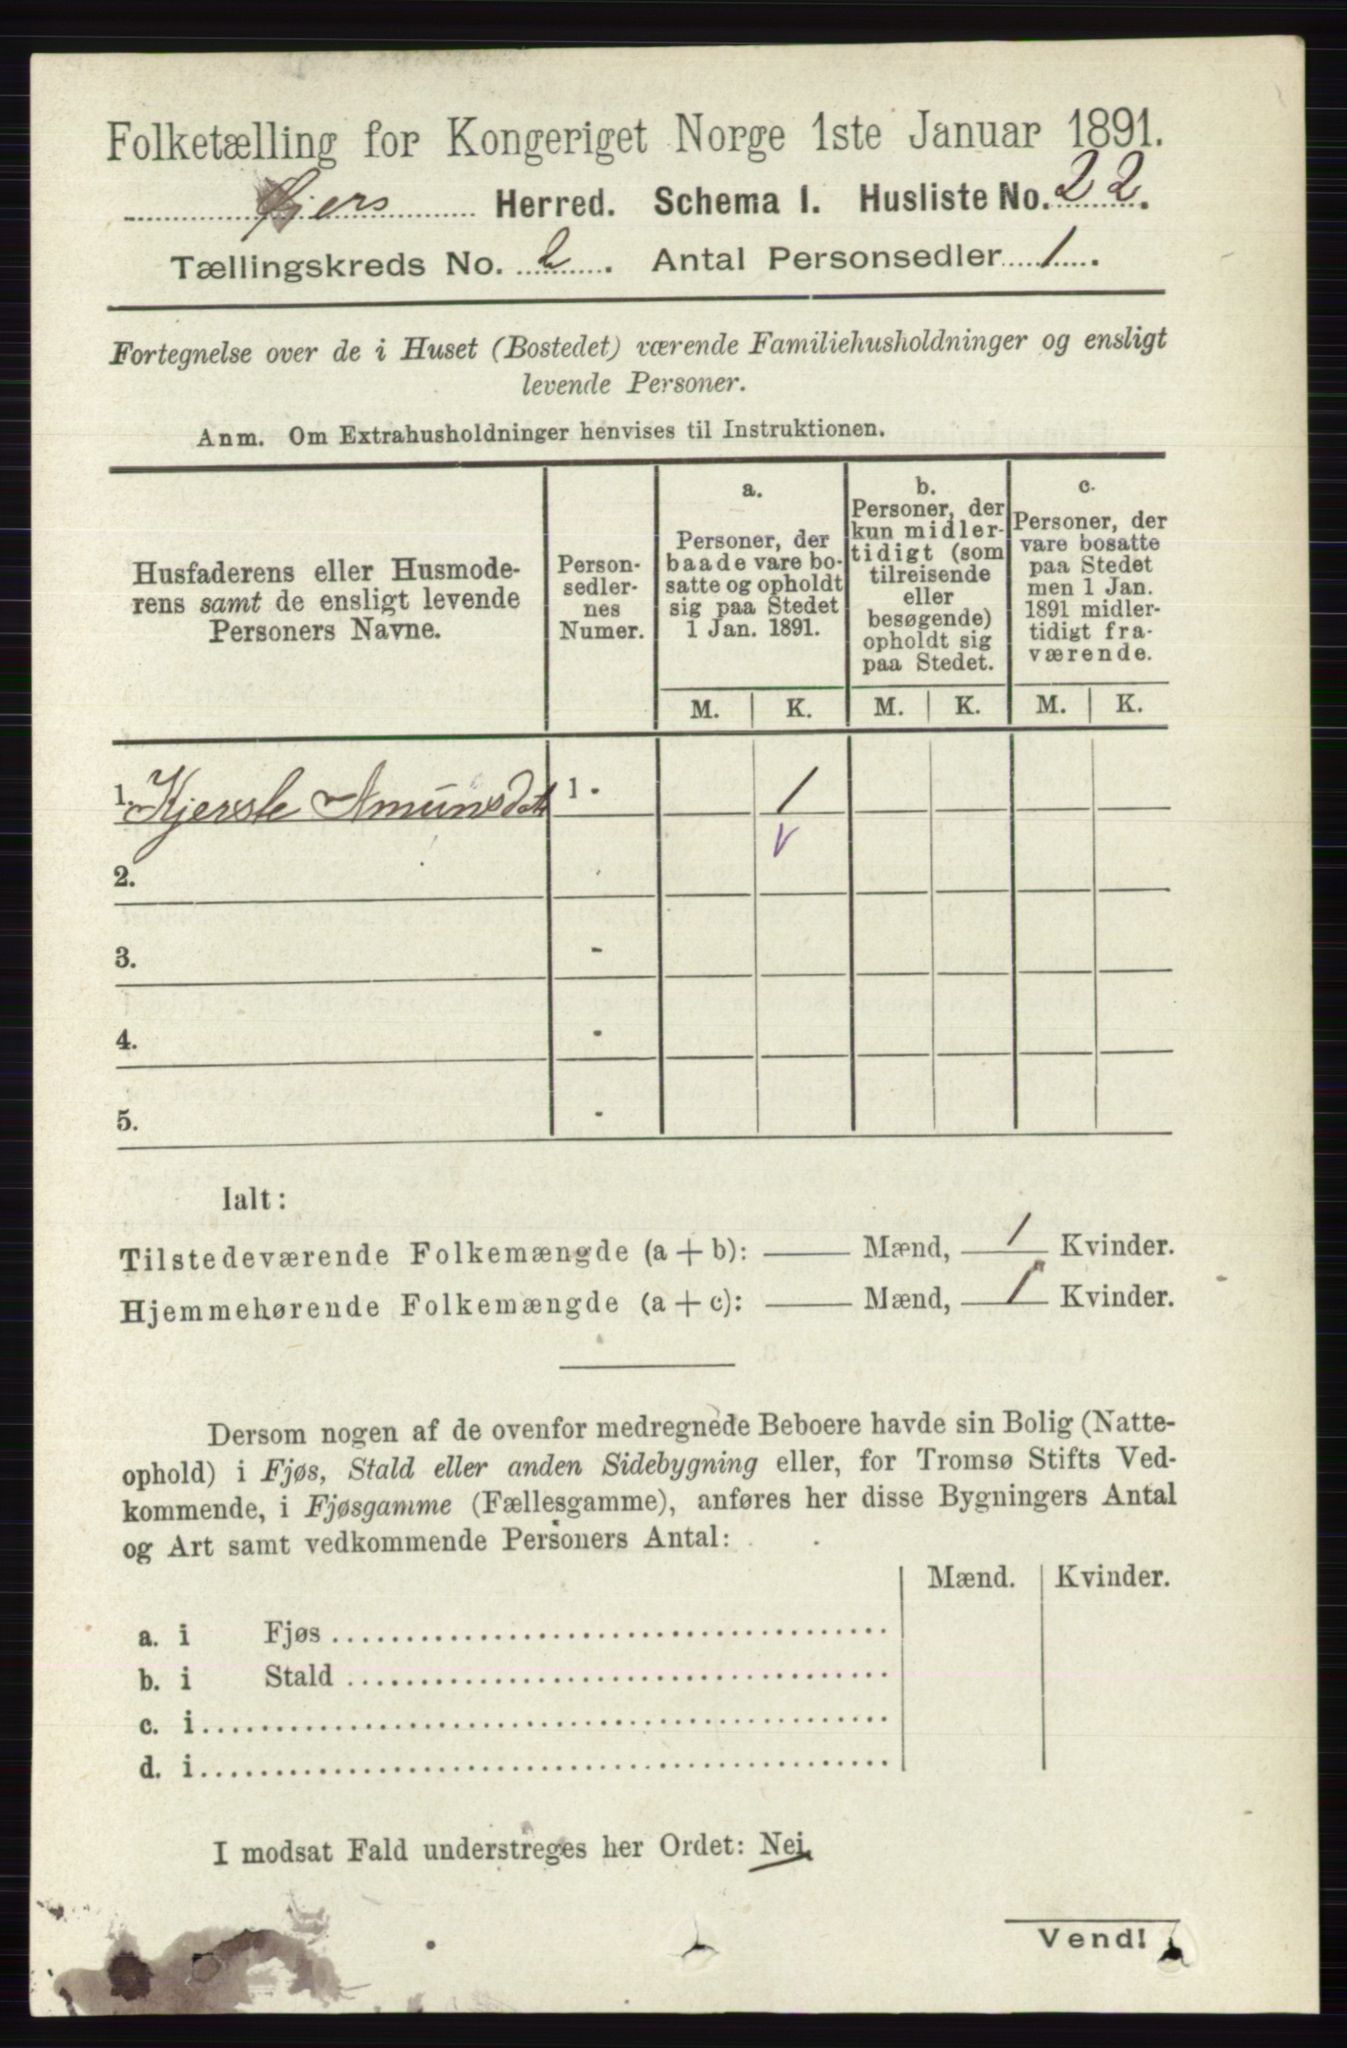 Folketælling for Kongeriget Norge 1ste Januar 1891.
Gjers Herred. Schema I. Husliste No. 22.
Tællingskreds No. 2. Antal Personsedler 1.
Fortegnelse over de i Huset (Bostedet) værende Familiehusholdninger og ensligt
levende Personer.
Anm. Om Extrahusholdninger henvises til Instruktionen.
Husfaderens eller Husmode-
rens samt de ensligt levende
Personers Navne.
Person-
sedler-
nes
Numer.
a.
Personer, der
baade vare bo-
satte og opholdt
sig paa Stedet
1 Jan. 1891.
b.
Personer, der
kun midler-
tidigt (som
tilreisende
eller
besøgende)
opholdt sig
paa Stedet.
c.
Personer, der
vare bosatte
paa Stedet
men 1 Jan.
1891 midler-
tidigt fra-
værende.
M. K. M. K. M. K.
1. Kjerste Amunsdatt 1 - 1
2. -
3. -
4. -
5. -
Ialt:
Tilstedeværende Folkemængde (a + b): Mænd, 1 Kvinder.
Hjemmehørende Folkemængde (a + c): Mænd, 1 Kvinder.
Dersom nogen af de ovenfor medregnede Beboere havde sin Bolig (Natte-
ophold) i Fjøs, Stald eller anden Sidebygning eller, for Tromsø Stifts Ved-
kommende, i Fjøsgamme (Fællesgamme), anføres her disse Bygningers Antal
og Art samt vedkommende Personers Antal:
Mænd. Kvinder.
a. i Fjøs
b. i Stald
c. i
d. i
I modsat Fald understreges her Ordet: Nei.
Vend!